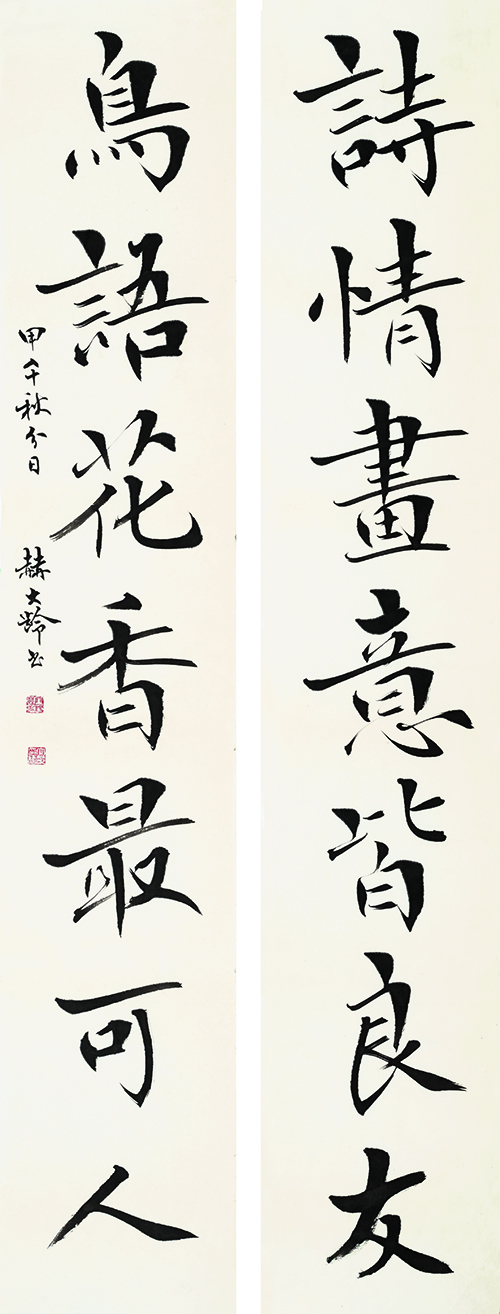 詩情畫意皆良友
鳥語花香最可人
甲午秋分日
赫大龄书